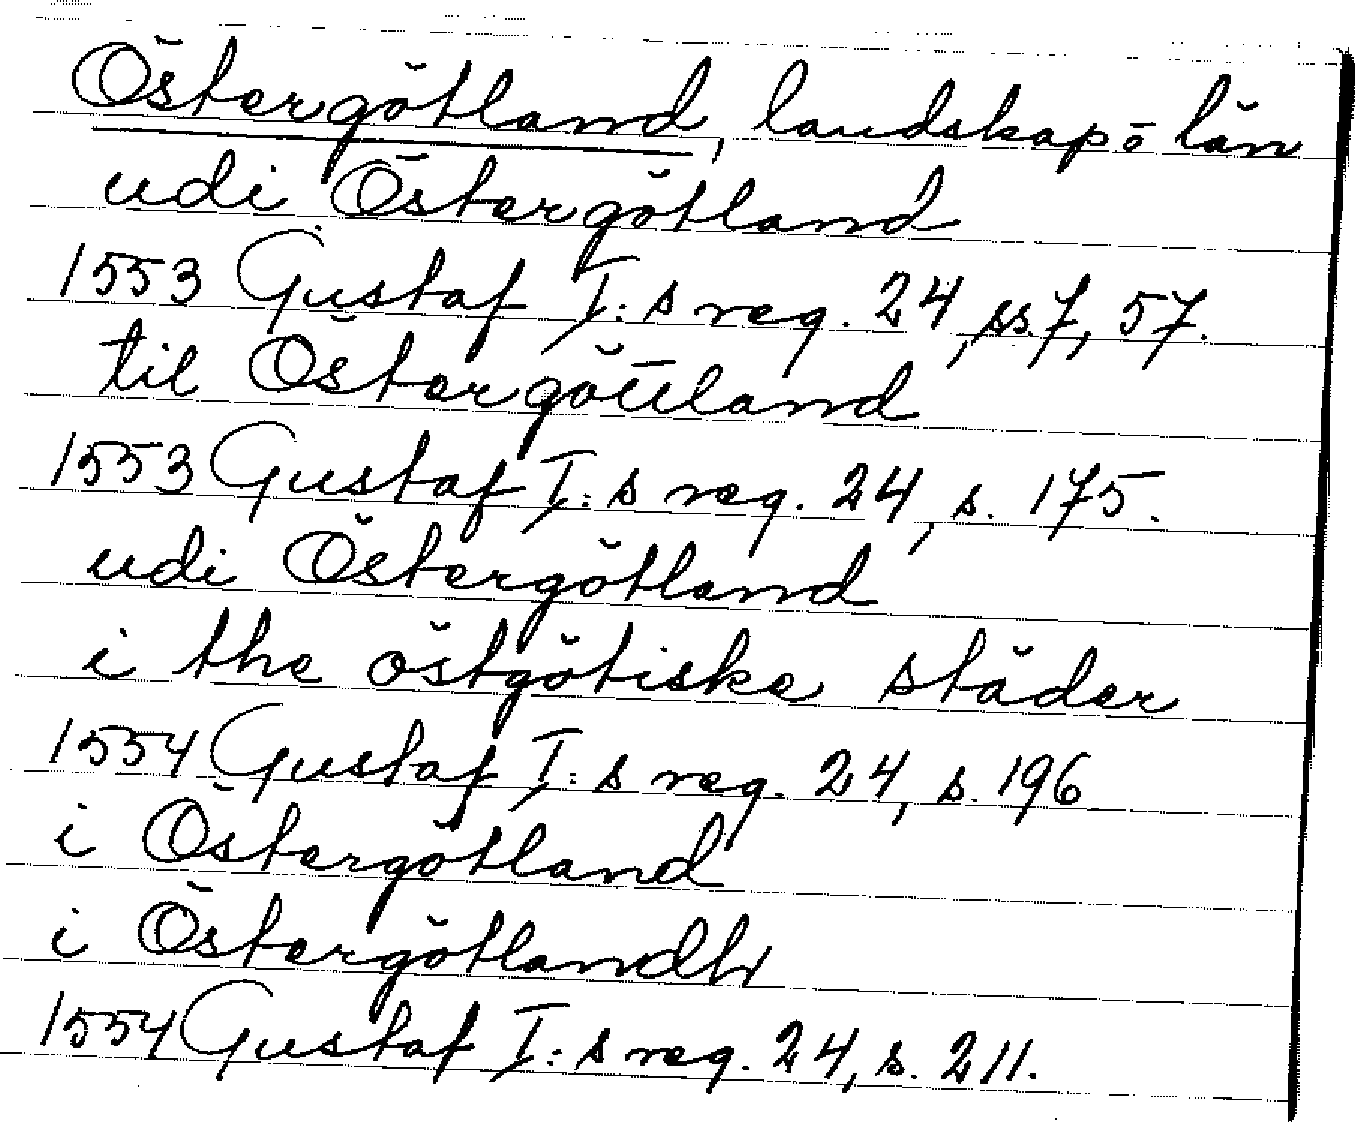 Östergötland, landskap o län
udi Östergötland
1553 Gustaf I:s reg. 24, ss. 7, 57.
til Östergöttland
1553 Gustaf I:s reg. 24, s. 175.
udi Östergötland
i the östgötiske städer
1554 Gustaf I:s reg. 24, s. 196
i Östergötland
i Östergötlandh
1554 Gustaf I:s reg. 24, s. 211.